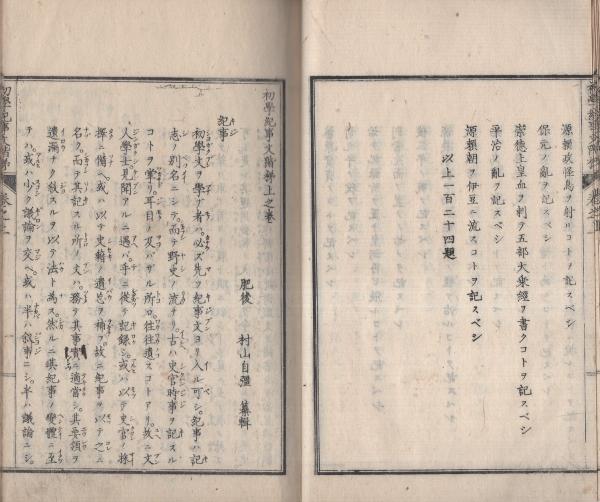 源頼政怪鳥ヲ射ルコトヲ記スベシ
保元ノ亂ヲ記スベシ
崇德上皇血ヲ刺テ五部大衆經ヲ書クコトヲ記スベシ
平治ノ亂ヲ記スベシ
源頼朝ヲ伊豆ニ流スコトヲ記スベシ
以上一百二十四題
初學紀事文階梯上之卷
肥後 村山自彊 纂輯
紀事
初學文ヲ學ブ者ハ。必ズ先ヅ紀事文ヨリ入ル可シ。紀事ハ記
志ノ別名ニシテ。而テ野史ノ流ナリ。古ハ史官時事ヲ記スル
コトヲ掌リ耳目ノ及バザル所ロ。往往遺スコトアリ。故ニ文
人學士見聞アルニ遇バ。手ニ從テ記録シ。或ハ以テ史官ノ採
擇ニ備ヘ。或ハ以テ史籍ノ遺忘ヲ補フ。故ニ紀事ヲ以テ之ニ
名ク。而テ其記スル所ノ文ハ。務テ其事實ニ適當シ。其要領ヲ
遺漏ナク敍スルヲ以テ法ト為ス。然ルニ其紀事ノ變體ニ至
テハ。或ハ少ク議論ヲ交ヘ。或ハ半ハ敍事ニシ。半ハ議論ニシ。